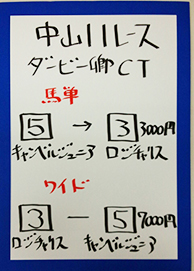 中山11レース
ダービー卿CT
馬単
5 → 3 3000円
キャンベルジュニア ロジチャリス
ワイド
3 — 5 7000円
ロジチャリス キャンベルジュニア